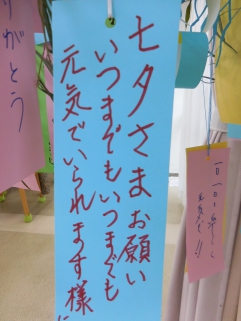 七夕さまお願い
いつまでもいつまでも
元気でいられます様
に
りがとう